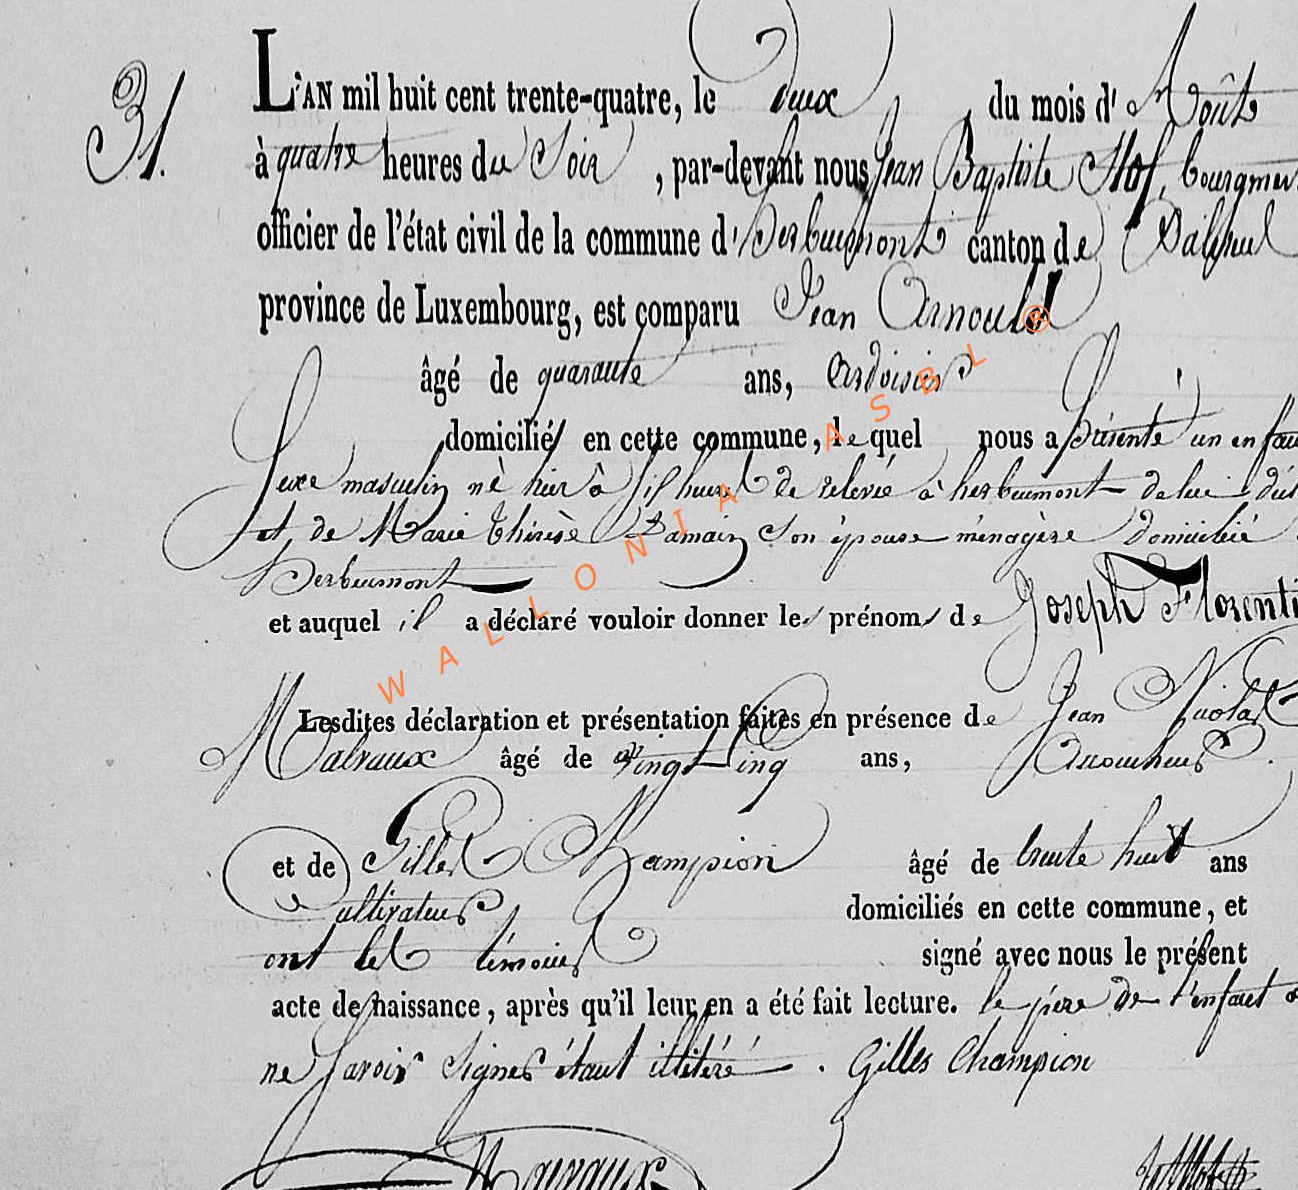 31.
L'AN mil huit cent trente-quatre, le deux du mois d'Août
à quatre heures du Soir, par-devant nous Jean Baptiste bourgmes
officier de l'état civil de la commune d'herbeumont canton de
province de Luxembourg, est comparu Jean Arnould
âgé de quarante ans, Ardoisier
domicilié en cette commune, lequel nous a présenté un enfan
sexe masculin nè hier à huit de relevée à herbeumont de lui
et de Marie thérèse Damain son épouse ménagère domiciliée
herbeumont
et auquel il a déclaré vouloir donner les prénoms de Joseph Florenti
Lesdites déclaration et présentation faites en présence de Jean Nicolas
Malvaux âgé de vingt cinq ans,
et de Gilles Champion âgé de trente huit ans
Cultivateur domiciliés en cette commune, et
ont les témoins signé avec nous le présent
acte de naissance, après qu'il leur en a été fait lecture. le père de l'enfant
ne savoir signer étant illitéré. Gilles Champion
Malvaux
WALLONIA ASBL ®